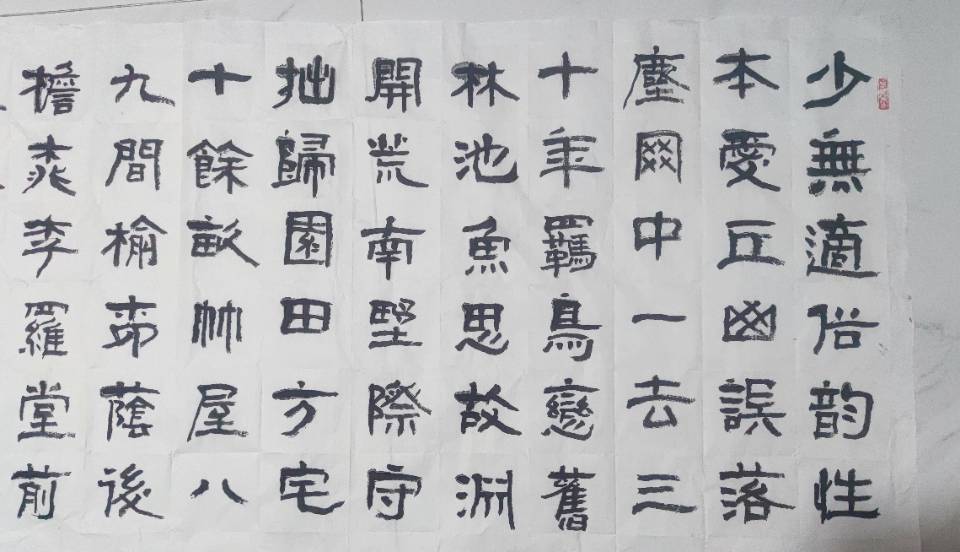 少無適俗韵性
本愛丘山誤落
塵网中一去三
十年羈鳥戀舊
林池魚思故淵
開荒南墅際守
拙歸園田方宅
十餘畝艸屋八
九間榆柳蔭後
檐桃李羅堂前